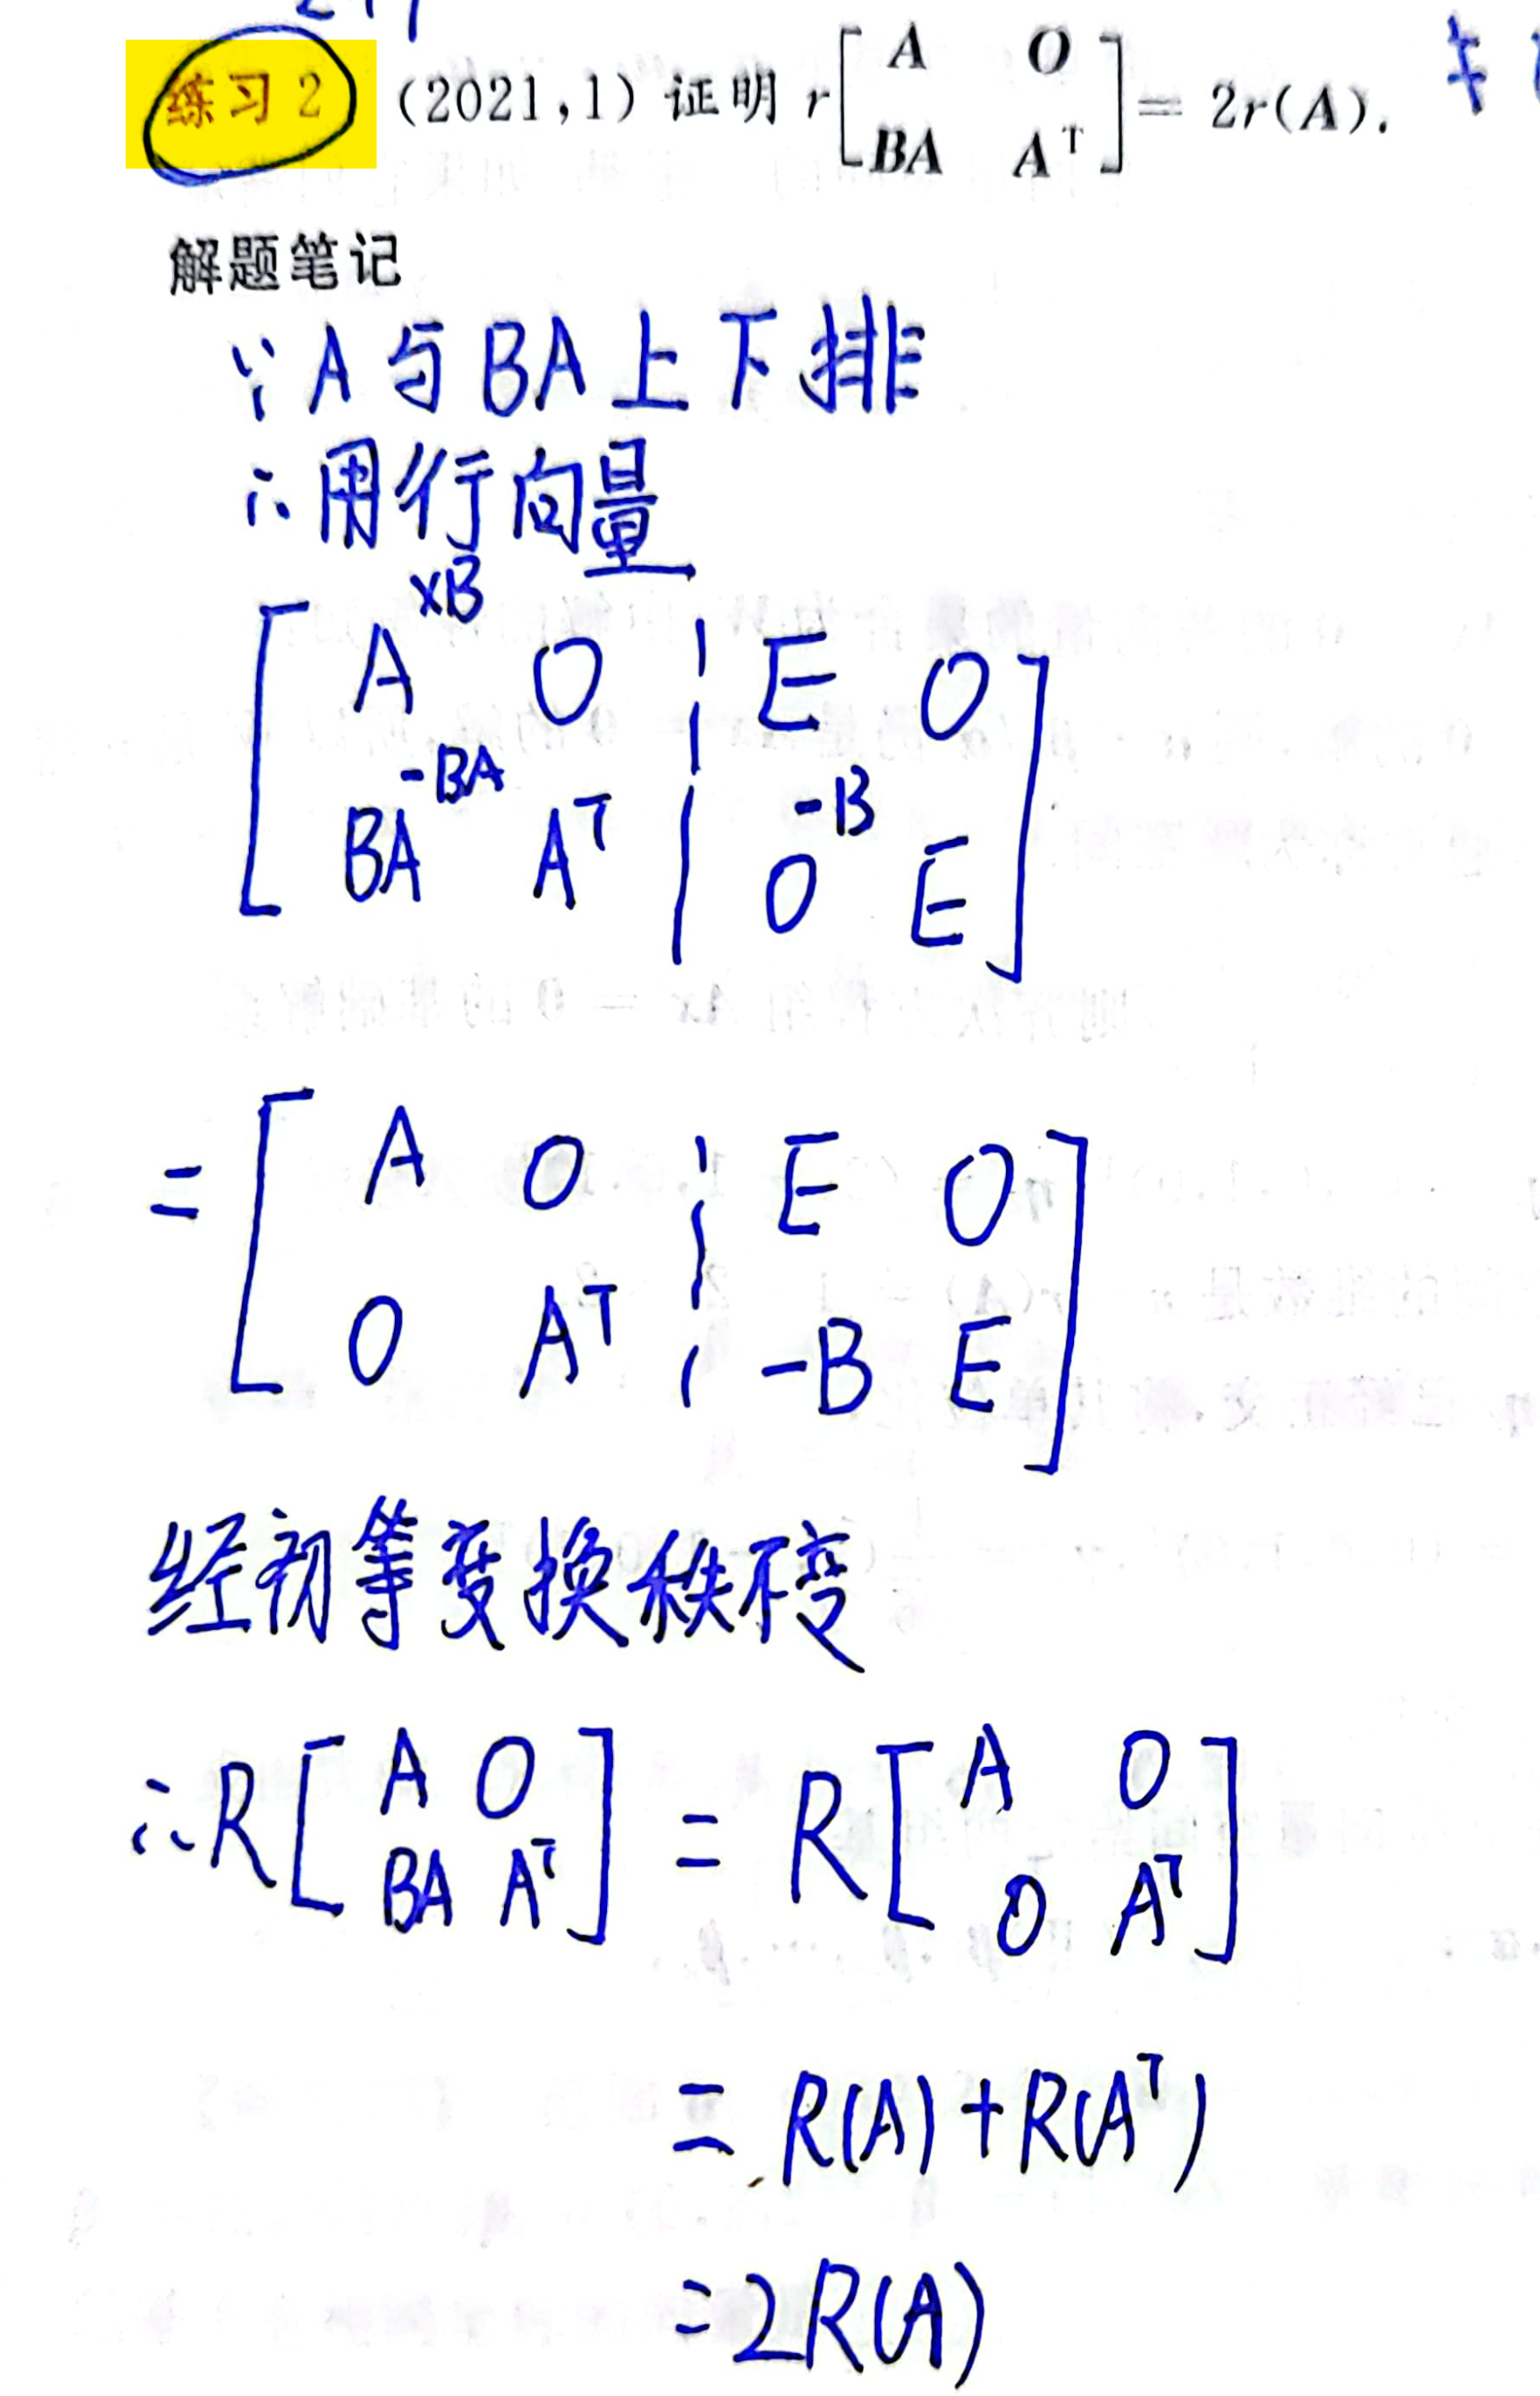 练习 2 (2021,1) 证明 r[A O
BA Aᵀ] = 2r(A).
解题笔记
∵ A 与 BA 上下排
∴ 用行向量
×B
[ A O ¦ E O
-BA -B
BA Aᵀ ¦ O E ]
= [ A O ¦ E O
O Aᵀ ¦ -B E ]
经初等变换秩不变
∴ R[ A O
BA Aᵀ ] = R[ A O
O Aᵀ ]
= R(A) + R(Aᵀ)
= 2R(A)